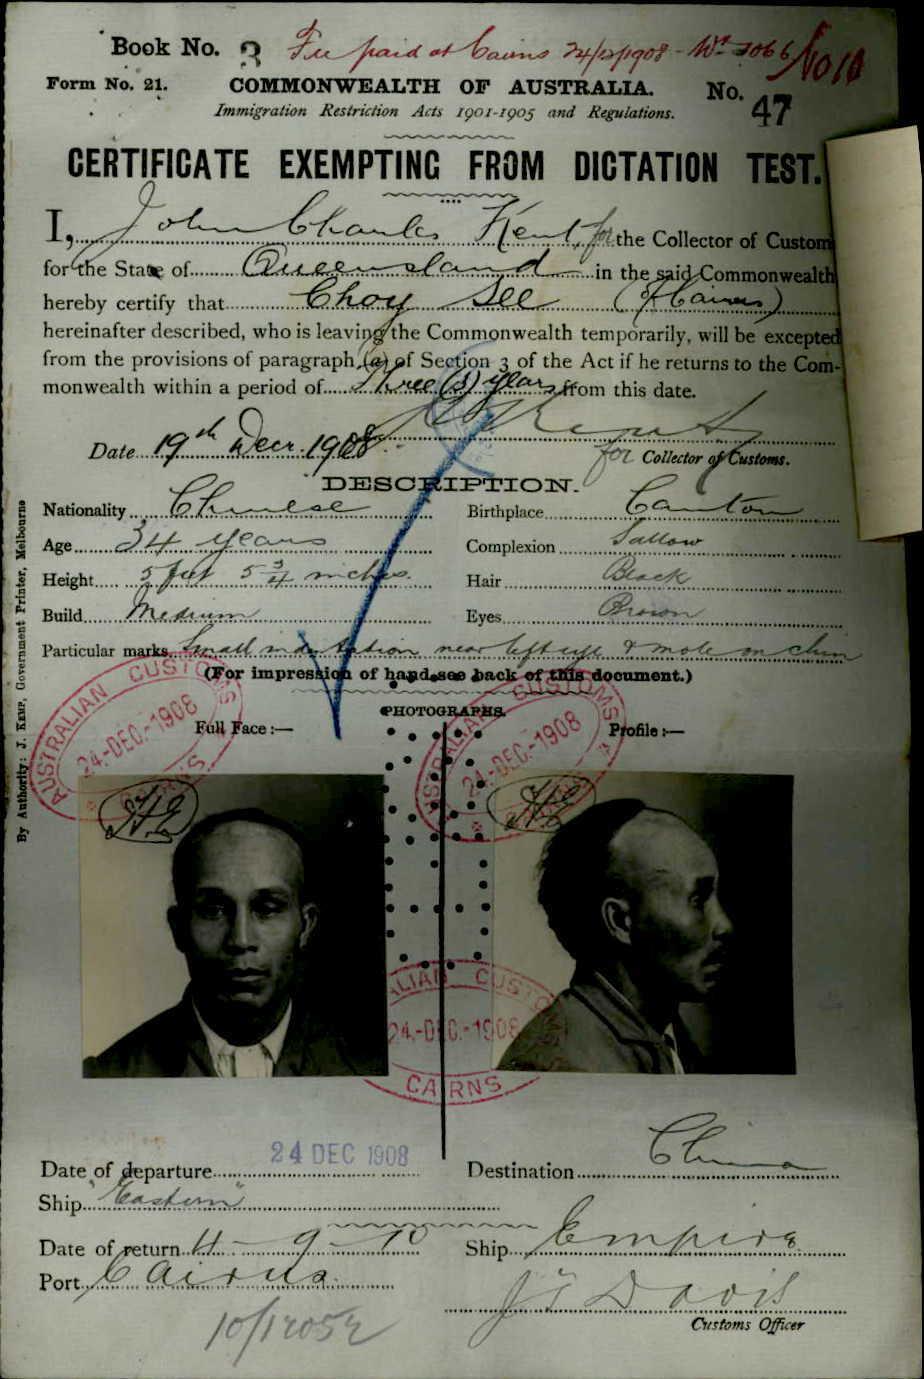 Book No. 3 Fee paid at Cairns 24/12/1908 - No 10
Form No. 21. COMMONWEALTH OF AUSTRALIA. No. 47
Immigration Restriction Acts 1901-1905 and Regulations.
CERTIFICATE EXEMPTING FROM DICTATION TEST.
I, John Charles Kent, for the Collector of Customs
for the State of Queensland in the said Commonwealth
hereby certify that Choy See (of Cairns)
hereinafter described, who is leaving the Commonwealth temporarily, will be excepted
from the provisions of paragraph (a) of Section 3 of the Act if he returns to the Com-
monwealth within a period of Three (3) years from this date.
Date 19th Decr. 1908 for Collector of Customs.
DESCRIPTION.
Nationality Chinese Birthplace Canton
Age 34 years Complexion Sallow
Height 5 feet 5 3/4 inches. Hair Black
Build Medium Eyes Brown
Particular marks Small indentation near left eye & mole on chin
(For impression of hand see back of this document.)
PHOTOGRAPHS.
Full Face :— Profile :—
AUSTRALIAN CUSTOMS 24-DEC.-1908 CAIRNS
AUSTRALIAN CUSTOMS 24-DEC-1908
ALIAN CUSTOMS
24-DEC.-1908
CAIRNS
Date of departure 24 DEC 1908 Destination China
Ship "Eastern"
Date of return 4 - 9 - 10 Ship Empire
Port Cairns
J Davis
Customs Officer
10/12052
By Authority: J. KEMP, Government Printer, Melbourne